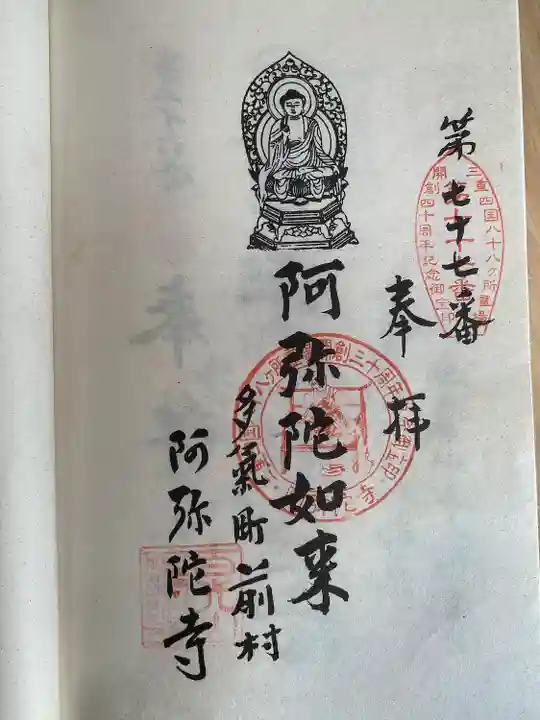 第七十七番
三重四国八十八ヶ所霊場
開創四十周年記念御宝印
奉拝
阿弥陀如来
開創三十周年
多氣町前村
阿弥陀寺